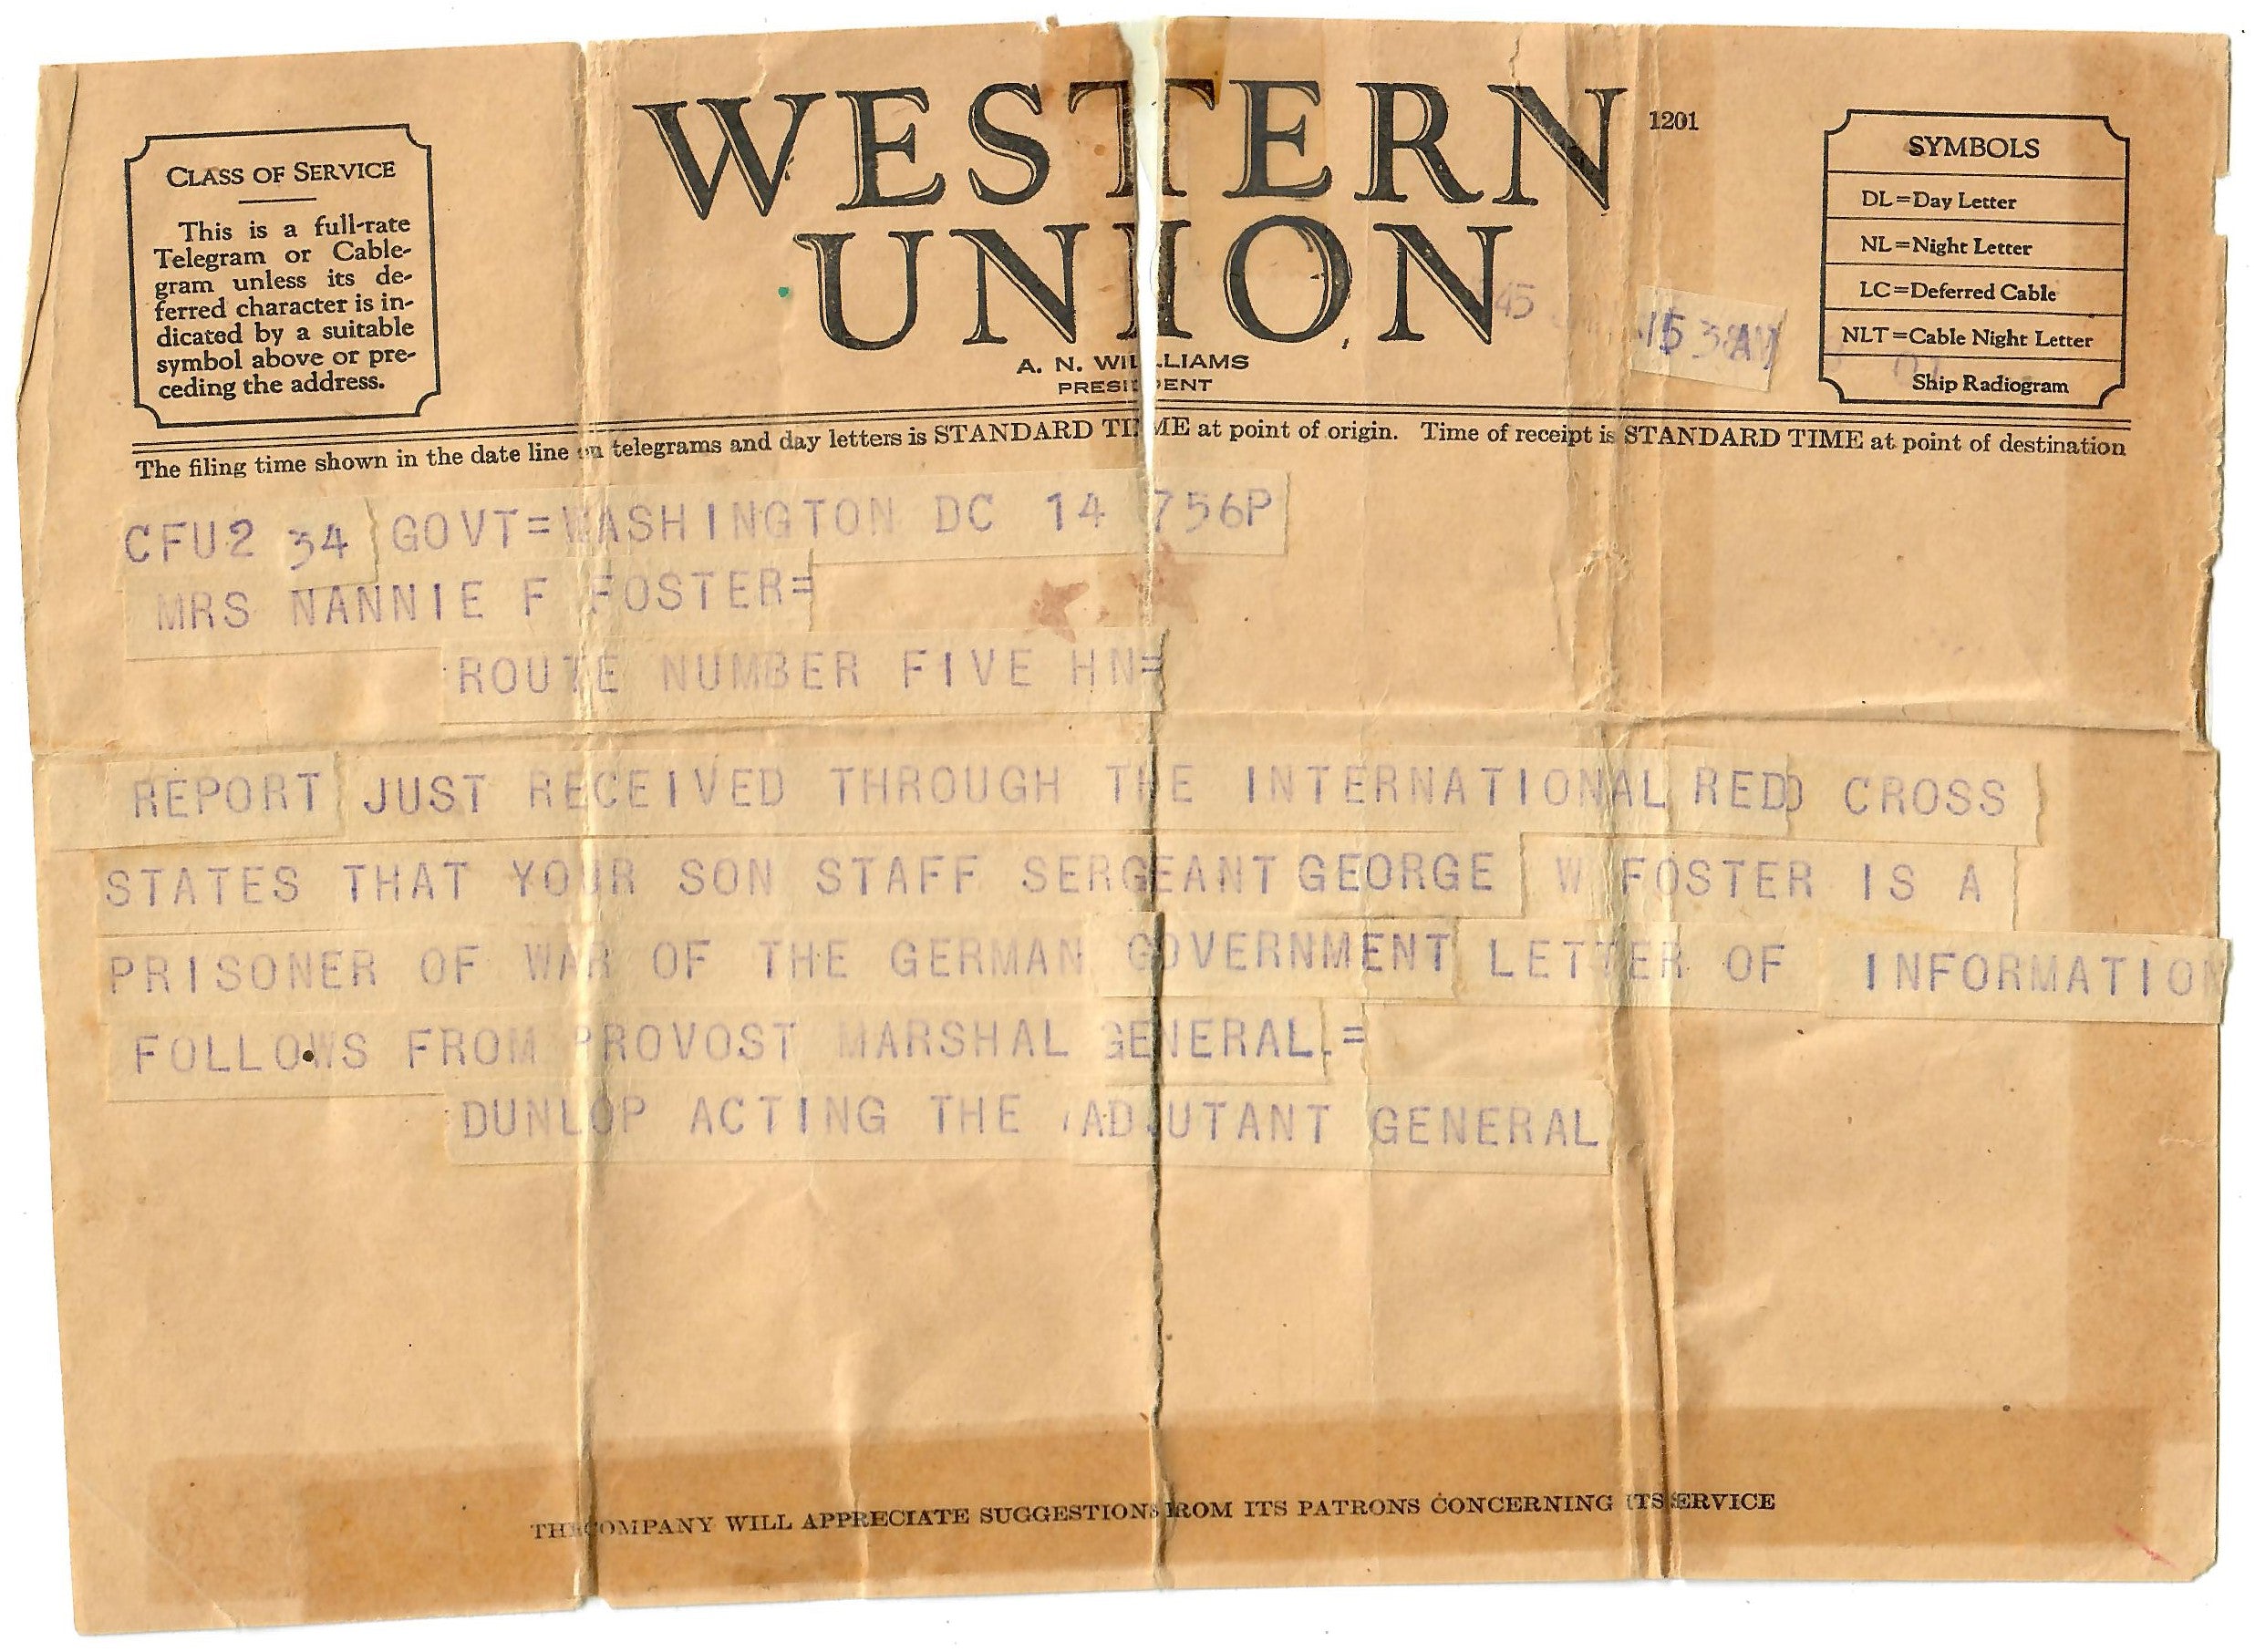 WESTERN
UNION
1201
A. N. WILLIAMS
PRESIDENT
CLASS OF SERVICE
This is a full-rate
Telegram or Cable-
gram unless its de-
ferred character is in-
dicated by a suitable
symbol above or pre-
ceding the address.
SYMBOLS
DL=Day Letter
NL=Night Letter
LC=Deferred Cable
NLT=Cable Night Letter
Ship Radiogram
45
The filing time shown in the date line on telegrams and day letters is STANDARD TIME at point of origin. Time of receipt is STANDARD TIME at point of destination
CFU2 34 GOVT=WASHINGTON DC 14 756P
MRS NANNIE F FOSTER=
ROUTE NUMBER FIVE HN=
REPORT JUST RECEIVED THROUGH THE INTERNATIONAL RED CROSS
STATES THAT YOUR SON STAFF SERGEANT GEORGE W FOSTER IS A
PRISONER OF WAR OF THE GERMAN GOVERNMENT LETTER OF INFORMATION
FOLLOWS FROM PROVOST MARSHAL GENERAL.=
DUNLOP ACTING THE ADJUTANT GENERAL
THE COMPANY WILL APPRECIATE SUGGESTIONS FROM ITS PATRONS CONCERNING ITS SERVICE